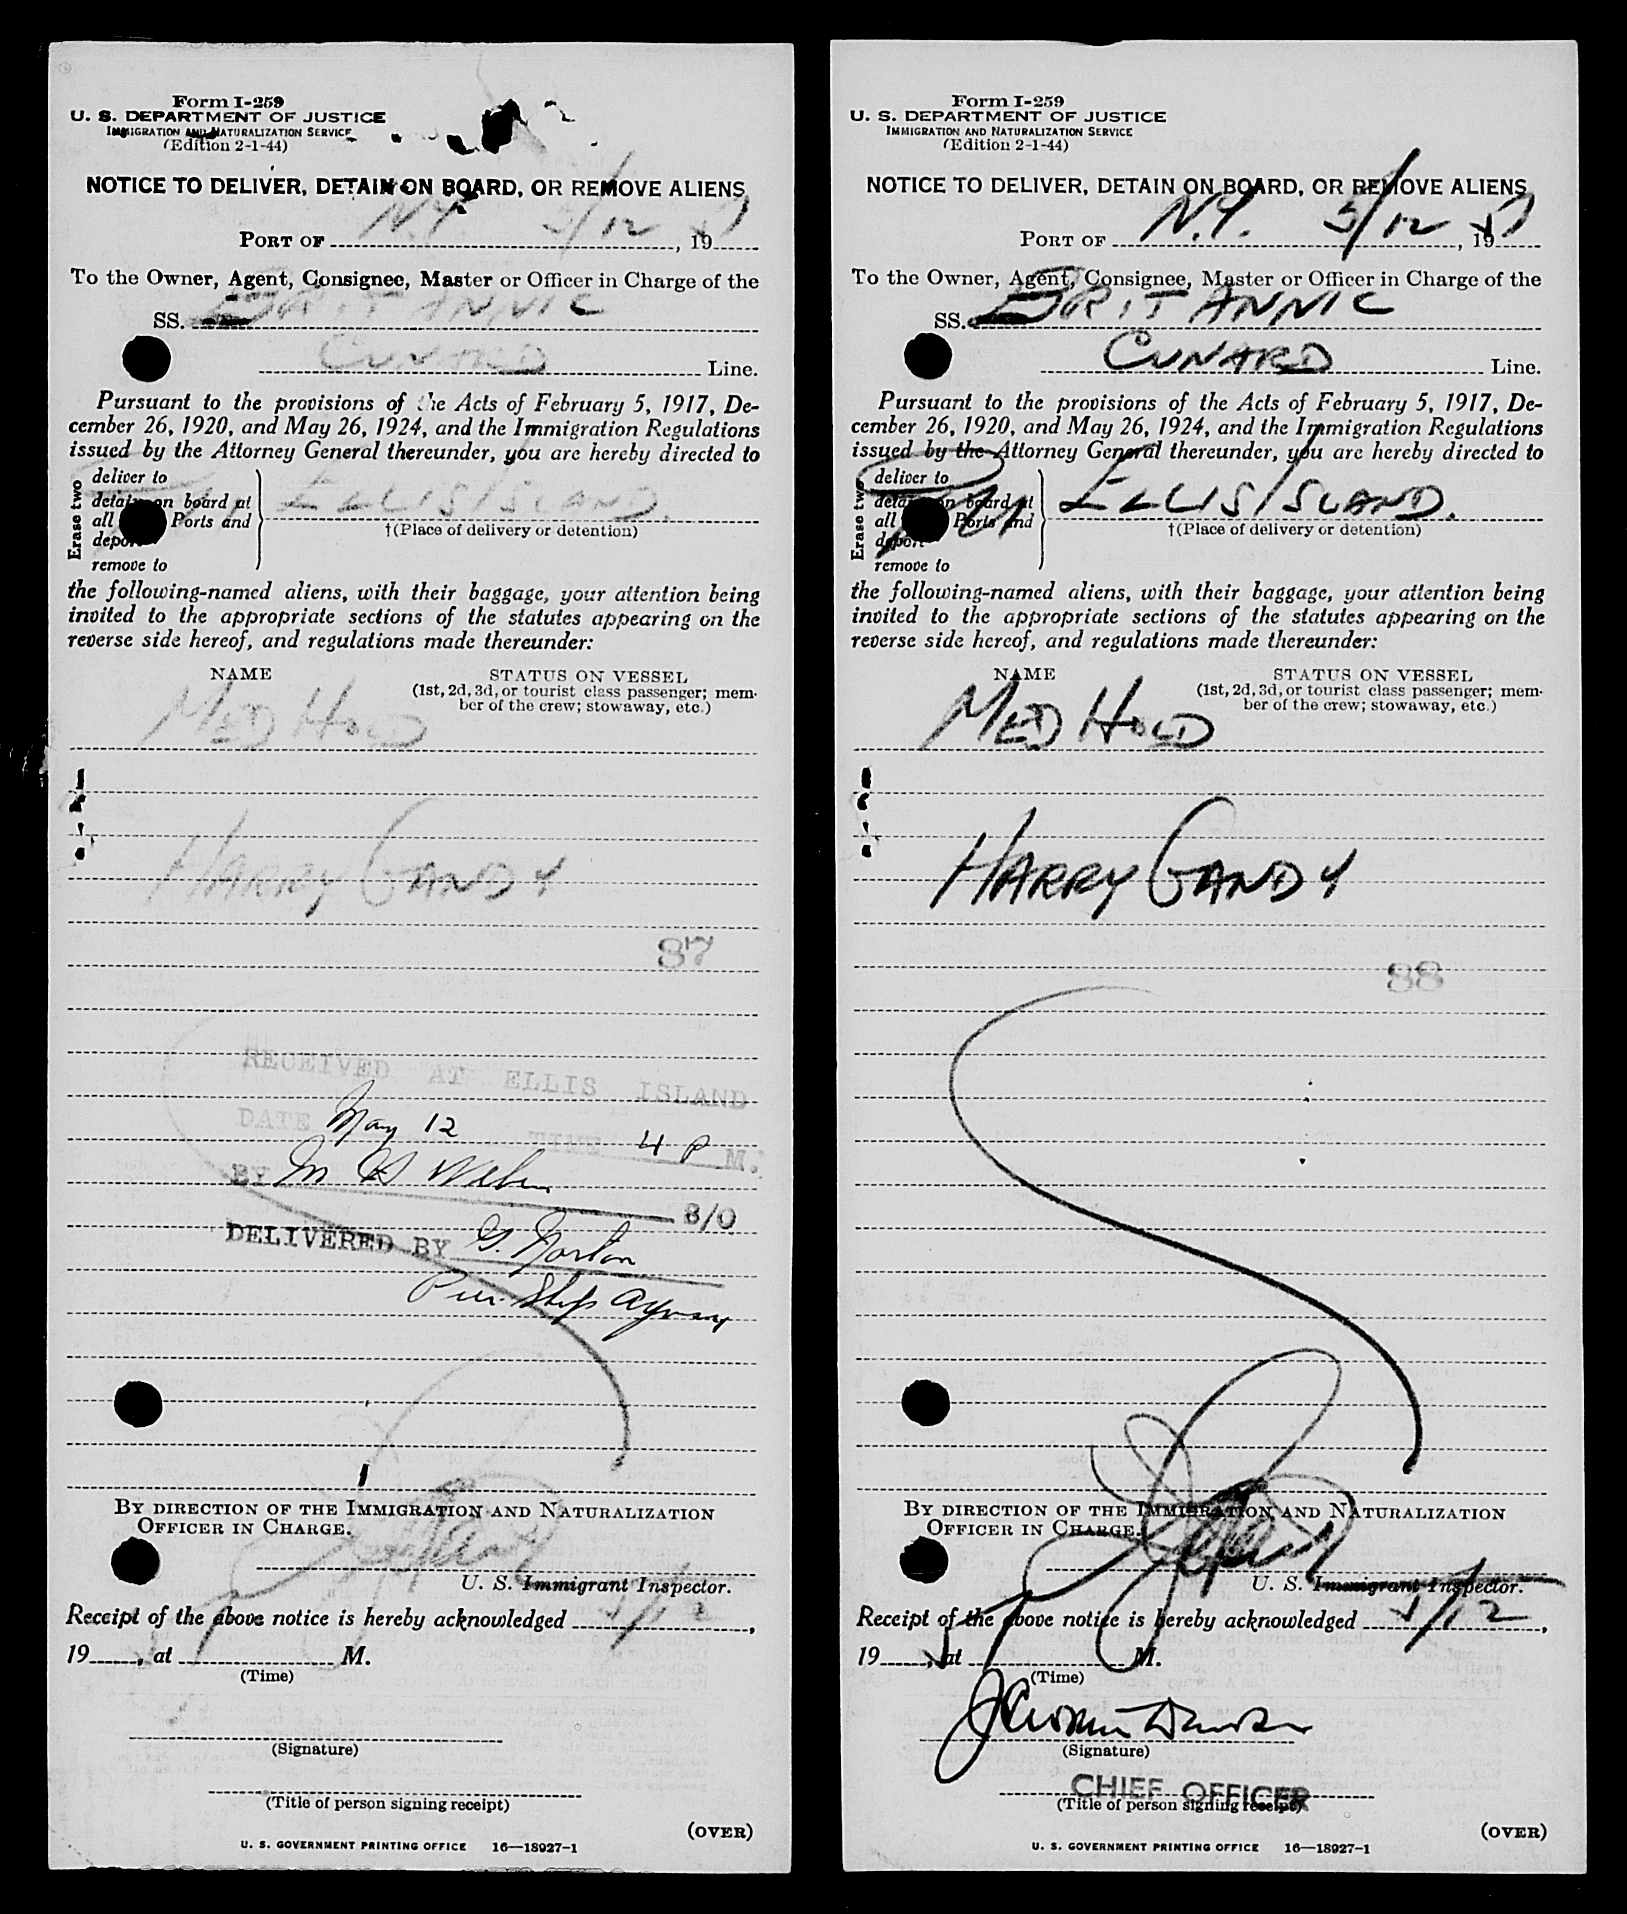 Form I-259
U. S. DEPARTMENT OF JUSTICE
IMMIGRATION AND NATURALIZATION SERVICE
(Edition 2-1-44)
NOTICE TO DELIVER, DETAIN ON BOARD, OR REMOVE ALIENS
N.Y. 5/12
PORT OF , 19
To the Owner, Agent, Consignee, Master or Officer in Charge of the
SS. BRITANNIC
CUNARD Line.
Pursuant to the provisions of the Acts of February 5, 1917, De-
cember 26, 1920, and May 26, 1924, and the Immigration Regulations
issued by the Attorney General thereunder, you are hereby directed to
Erase two
deliver to
detain on board at
all Ports and
deport
remove to
ELLIS ISLAND.
†(Place of delivery or detention)
the following-named aliens, with their baggage, your attention being
invited to the appropriate sections of the statutes appearing on the
reverse side hereof, and regulations made thereunder:
NAME STATUS ON VESSEL
(1st, 2d, 3d, or tourist class passenger; mem-
ber of the crew; stowaway, etc.)
MED HOLD
HARRY GANDY
87
RECEIVED AT ELLIS ISLAND
DATE May 12 TIME 4 P M.
BY M
8/0
DELIVERED BY G. Norton
BY DIRECTION OF THE IMMIGRATION AND NATURALIZATION
OFFICER IN CHARGE.
U. S. Immigrant Inspector.
Receipt of the above notice is hereby acknowledged 5/12,
19 , at M.
(Time)
(Signature)
(Title of person signing receipt)
(OVER)
U. S. GOVERNMENT PRINTING OFFICE 16—18927-1
Form I-259
U. S. DEPARTMENT OF JUSTICE
IMMIGRATION AND NATURALIZATION SERVICE
(Edition 2-1-44)
NOTICE TO DELIVER, DETAIN ON BOARD, OR REMOVE ALIENS
N.Y. 5/12
PORT OF , 19
To the Owner, Agent, Consignee, Master or Officer in Charge of the
SS. BRITANNIC
CUNARD Line.
Pursuant to the provisions of the Acts of February 5, 1917, De-
cember 26, 1920, and May 26, 1924, and the Immigration Regulations
issued by the Attorney General thereunder, you are hereby directed to
Erase two
deliver to
detain on board at
all Ports and
deport
remove to
ELLIS ISLAND.
†(Place of delivery or detention)
the following-named aliens, with their baggage, your attention being
invited to the appropriate sections of the statutes appearing on the
reverse side hereof, and regulations made thereunder:
NAME STATUS ON VESSEL
(1st, 2d, 3d, or tourist class passenger; mem-
ber of the crew; stowaway, etc.)
MED HOLD
HARRY GANDY
88
BY DIRECTION OF THE IMMIGRATION AND NATURALIZATION
OFFICER IN CHARGE.
U. S. Immigrant Inspector.
Receipt of the above notice is hereby acknowledged 5/12,
19 , at M.
(Time)
(Signature)
CHIEF OFFICER
(Title of person signing receipt)
(OVER)
U. S. GOVERNMENT PRINTING OFFICE 16—18927-1